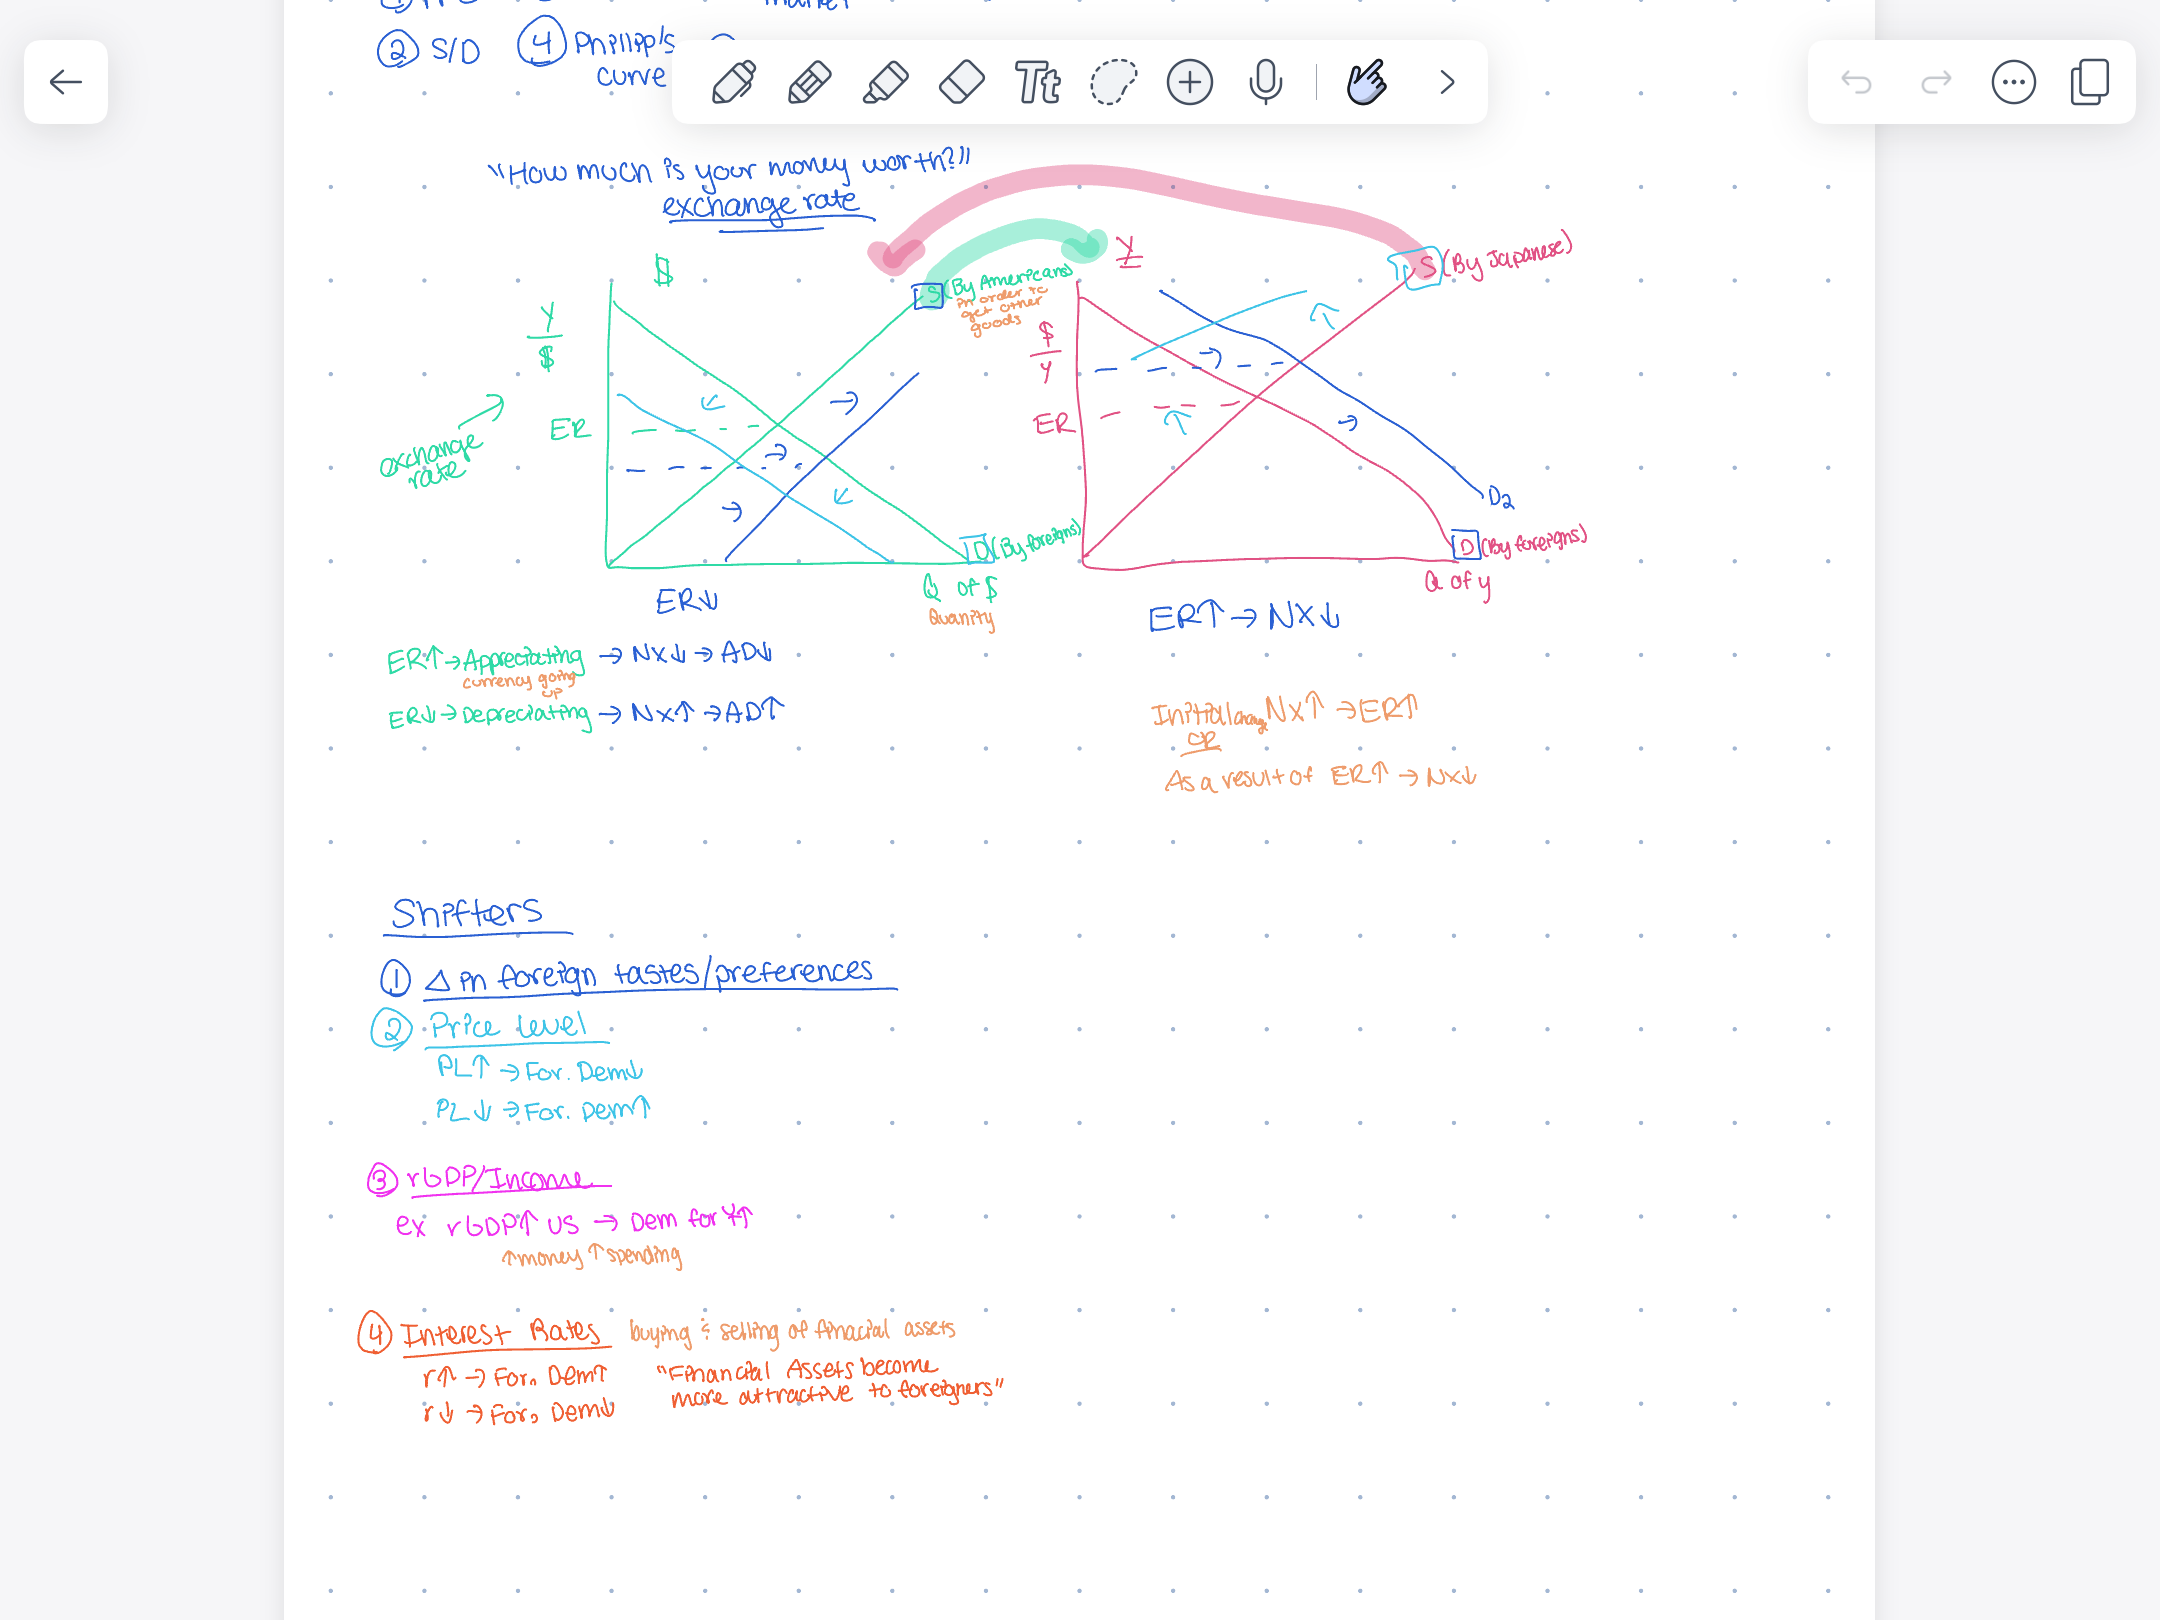 market
② S/D ④ Philipp's
curve
Tt
"How much is your money worth?"
exchange rate
$
Y
S (By Americans)
in order to
get other
goods
S (By Japanese)
Y
$
$
Y
ER
ER
exchange
rate
D2
D (By foreigns)
D (By foreigns)
Q of $
Quanity
Q of y
ER↓
ER↑ → NX↓
ER↑ → Appreciating → NX↓ → AD↓
currency going
up
ER↓ → Depreciating → NX↑ → AD↑
Initial change NX↑ → ER↑
OR
As a result of ER↑ → NX↓
Shifters
① Δ in foreign tastes/preferences
② Price level
PL↑ → For. Dem↓
PL↓ → For. Dem↑
③ rGDP/Income
ex rGDP↑ US → Dem for ¥↑
↑money ↑spending
④ Interest Rates buying & selling of finacial assets
r↑ → For. Dem↑ "Financial Assets become
more attractive to foreigners"
r↓ → For. Dem↓